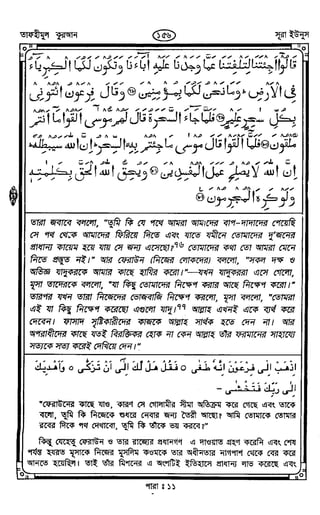 তাফহীমুল কুরআন
১৫৬
সূরা ইউনুস
قَالُوا أَجِئْتَنَا لِتَلْفِتَنَا عَمَّا وَجَدْنَا عَلَيْهِ آبَاءَنَا وَتَكُونَ لَكُمَا الْكِبْرِيَاءُ
فِي الْأَرْضِ وَمَا نَحْنُ لَكُمَا بِمُؤْمِنِينَ ۝ وَقَالَ فِرْعَوْنُ ائْتُونِي
بِكُلِّ سَاحِرٍ عَلِيمٍ ۝ فَلَمَّا جَاءَ السَّحَرَةُ قَالَ لَهُمْ مُوسَى أَلْقُوا مَا أَنْتُمْ
مُلْقُونَ ۝ فَلَمَّا أَلْقَوْا قَالَ مُوسَى مَا جِئْتُمْ بِهِ السِّحْرُ إِنَّ اللَّهَ سَيُبْطِلُهُ
إِنَّ اللَّهَ لَا يُصْلِحُ عَمَلَ الْمُفْسِدِينَ ۝ وَيُحِقُّ اللَّهُ الْحَقَّ بِكَلِمَاتِهِ
وَلَوْ كَرِهَ الْمُجْرِمُونَ ۝
তারা জবাবে বললো, "তুমি কি যে পথে আমরা আমাদের বাপ-দাদাদের পেয়েছি
সে পথ থেকে আমাদের ফিরিয়ে দিতে এবং যাতে যমীনে তোমাদের দু'জনের
প্রাধান্য কায়েম হয়ে যায় সে জন্য এসেছো?৭৬ তোমাদের কথা তো আমরা মেনে
নিতে প্রস্তুত নই।" আর ফেরাউন (নিজের লোকদের) বললো, "সকল দক্ষ ও
অভিজ্ঞ যাদুকরকে আমার কাছে হাযির করো।"—যখন যাদুকররা এসে গেলো,
মূসা তাদেরকে বললো, "যা কিছু তোমাদের নিক্ষেপ করার আছে নিক্ষেপ করো।"
তারপর যখন তারা নিজেদের ভোজবাজি নিক্ষেপ করলো, মূসা বললো, "তোমরা
এই যা কিছু নিক্ষেপ করেছো এগুলো যাদু।৭৭ আল্লাহ এখনই একে ব্যর্থ করে
দেবেন। ফাসাদ সৃষ্টিকারীদের কাজকে আল্লাহ সার্থক হতে দেন না। আর
অপরাধীদের কাছে যতই বিরক্তিকর হোক না কেন আল্লাহ তাঁর ফরমানের সাহায্যে
সত্যকে সত্য করেই দেখিয়ে দেন।"
اذْهَبْ إِلَى فِرْعَوْنَ إِنَّهُ طَغَى ۝ فَقُلْ هَلْ لَكَ إِلَى أَنْ تَزَكَّى ۝ وَأَهْدِيَكَ
إِلَى رَبِّكَ فَتَخْشَى -
"ফেরাউনের কাছে যাও, কারণ সে গোলামীর সীমা অতিক্রম করে গেছে এবং তাকে
বলো, তুমি কি নিজেকে শুধরে নেবার জন্য তৈরী আছো? আমি তোমাকে তোমার
রবের দিকে পথ দেখাবো, তুমি কি তাঁকে ভয় করবে?"
কিন্তু যেহেতু ফেরাউন ও তার রাজ্যের প্রধানগণ এ দাওয়াত গ্রহণ করেনি এবং শেষ
পর্যন্ত হযরত মূসাকে নিজের মুসলিম কওমকে তার অধীনতার নাগপাশ থেকে বের করে
আনতে হয়েছিল। তাই তাঁর মিশনের এ অংশটিই ইতিহাসে প্রাধান্য লাভ করেছে এবং
পারা : ১১